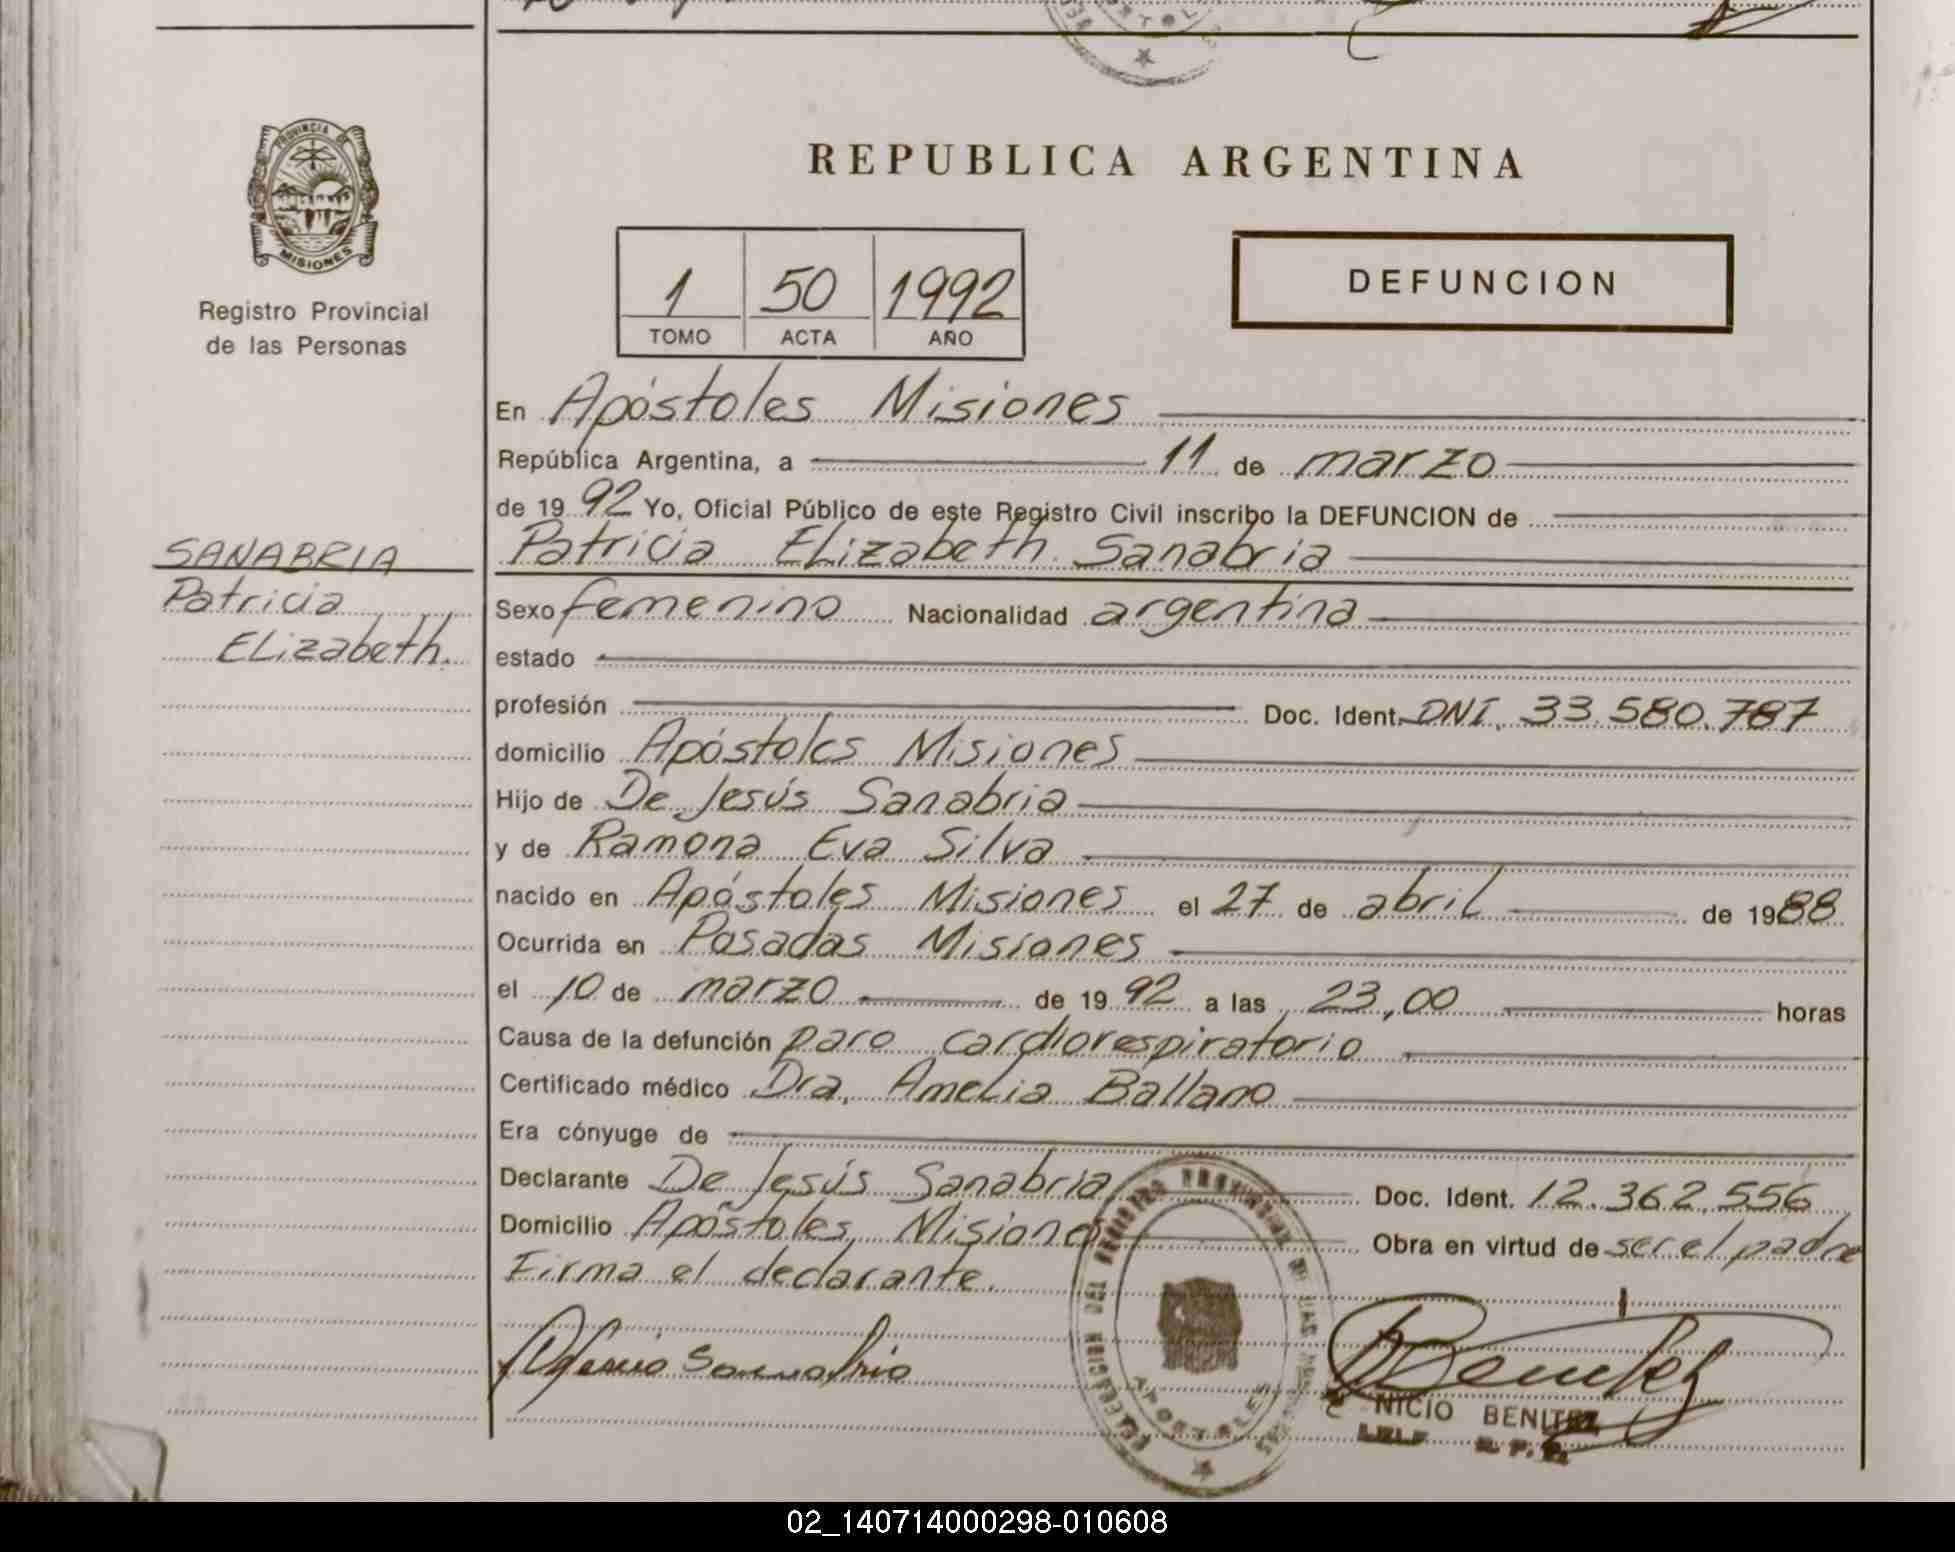 PROVINCIA DE
MISIONES
Registro Provincial
de las Personas
REPUBLICA ARGENTINA
1 50 1992
TOMO ACTA AÑO
DEFUNCION
En Apóstoles Misiones
República Argentina, a 11 de marzo
de 19 92 Yo, Oficial Público de este Registro Civil inscribo la DEFUNCION de
Patricia Elizabeth Sanabria
SANABRIA
Patricia
Elizabeth.
Sexo femenino Nacionalidad argentina
estado
profesión Doc. Ident. DNI. 33.580.787
domicilio Apóstoles Misiones
Hijo de De Jesús Sanabria
y de Ramona Eva Silva
nacido en Apóstoles Misiones el 27 de abril de 1988
Ocurrida en Posadas Misiones
el 10 de marzo de 19 92 a las 23,00 horas
Causa de la defunción paro cardiorespiratorio
Certificado médico Dra. Amelia Ballano
Era cónyuge de
Declarante De Jesús Sanabria Doc. Ident. 12.362.556
Domicilio Apóstoles Misiones Obra en virtud de ser el padre
Firma el declarante.
APOSTOLES
NICIO BENITEZ
02_140714000298-010608